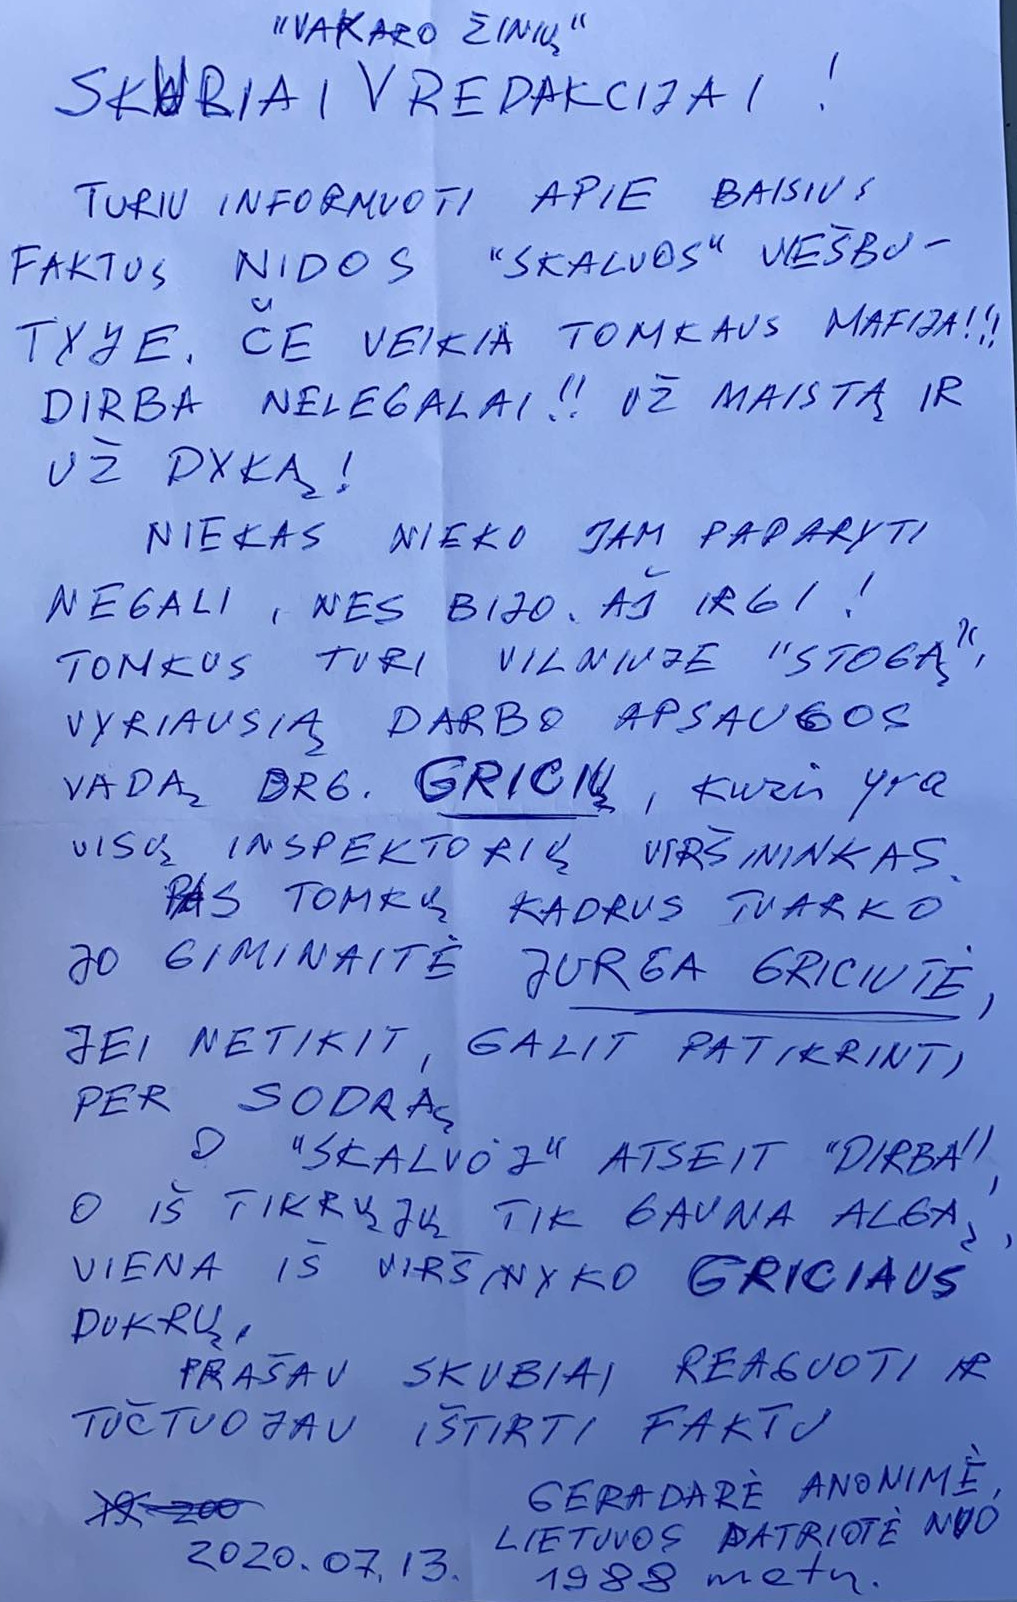 "VAKARO ŽINIŲ"
SKUBIAI V REDAKCIJAI !
TURIU INFORMUOTI APIE BAISIUS
FAKTUS NIDOS "SKALVOS" VIEŠBU-
TYJE. ČE VEIKIA TOMKAUS MAFIJA!!!
DIRBA NELEGALAI!! UŽ MAISTĄ IR
UŽ DYKĄ!
NIEKAS NIEKO JAM PAPARYTI
NEGALI, NES BIJO. AŠ IRGI!
TOMKUS TURI VILNIUJE "STOGĄ",
VYRIAUSIĄ DARBO APSAUGOS
VADĄ DRG. GRICIŲ, kuris yra
VISŲ INSPEKTORIŲ VIRŠININKAS.
PAS TOMKŲ KADRUS TVARKO
JO GIMINAITĖ JURGA GRICIUTĖ,
JEI NETIKIT, GALIT PATIKRINTI
PER SODRĄ
O "SKALVOJ" ATSEIT "DIRBA",
O IŠ TIKRŲJŲ TIK GAUNA ALGĄ,
VIENA IŠ VIRŠINYKO GRICIAUS
DUKRŲ.
PRAŠAU SKUBIAI REAGUOTI IR
TUČTUOJAU IŠTIRTI FAKTU
GERADARĖ ANONIMĖ,
LIETUVOS PATRIOTĖ NUO
1988 metų.
2020.07.13.